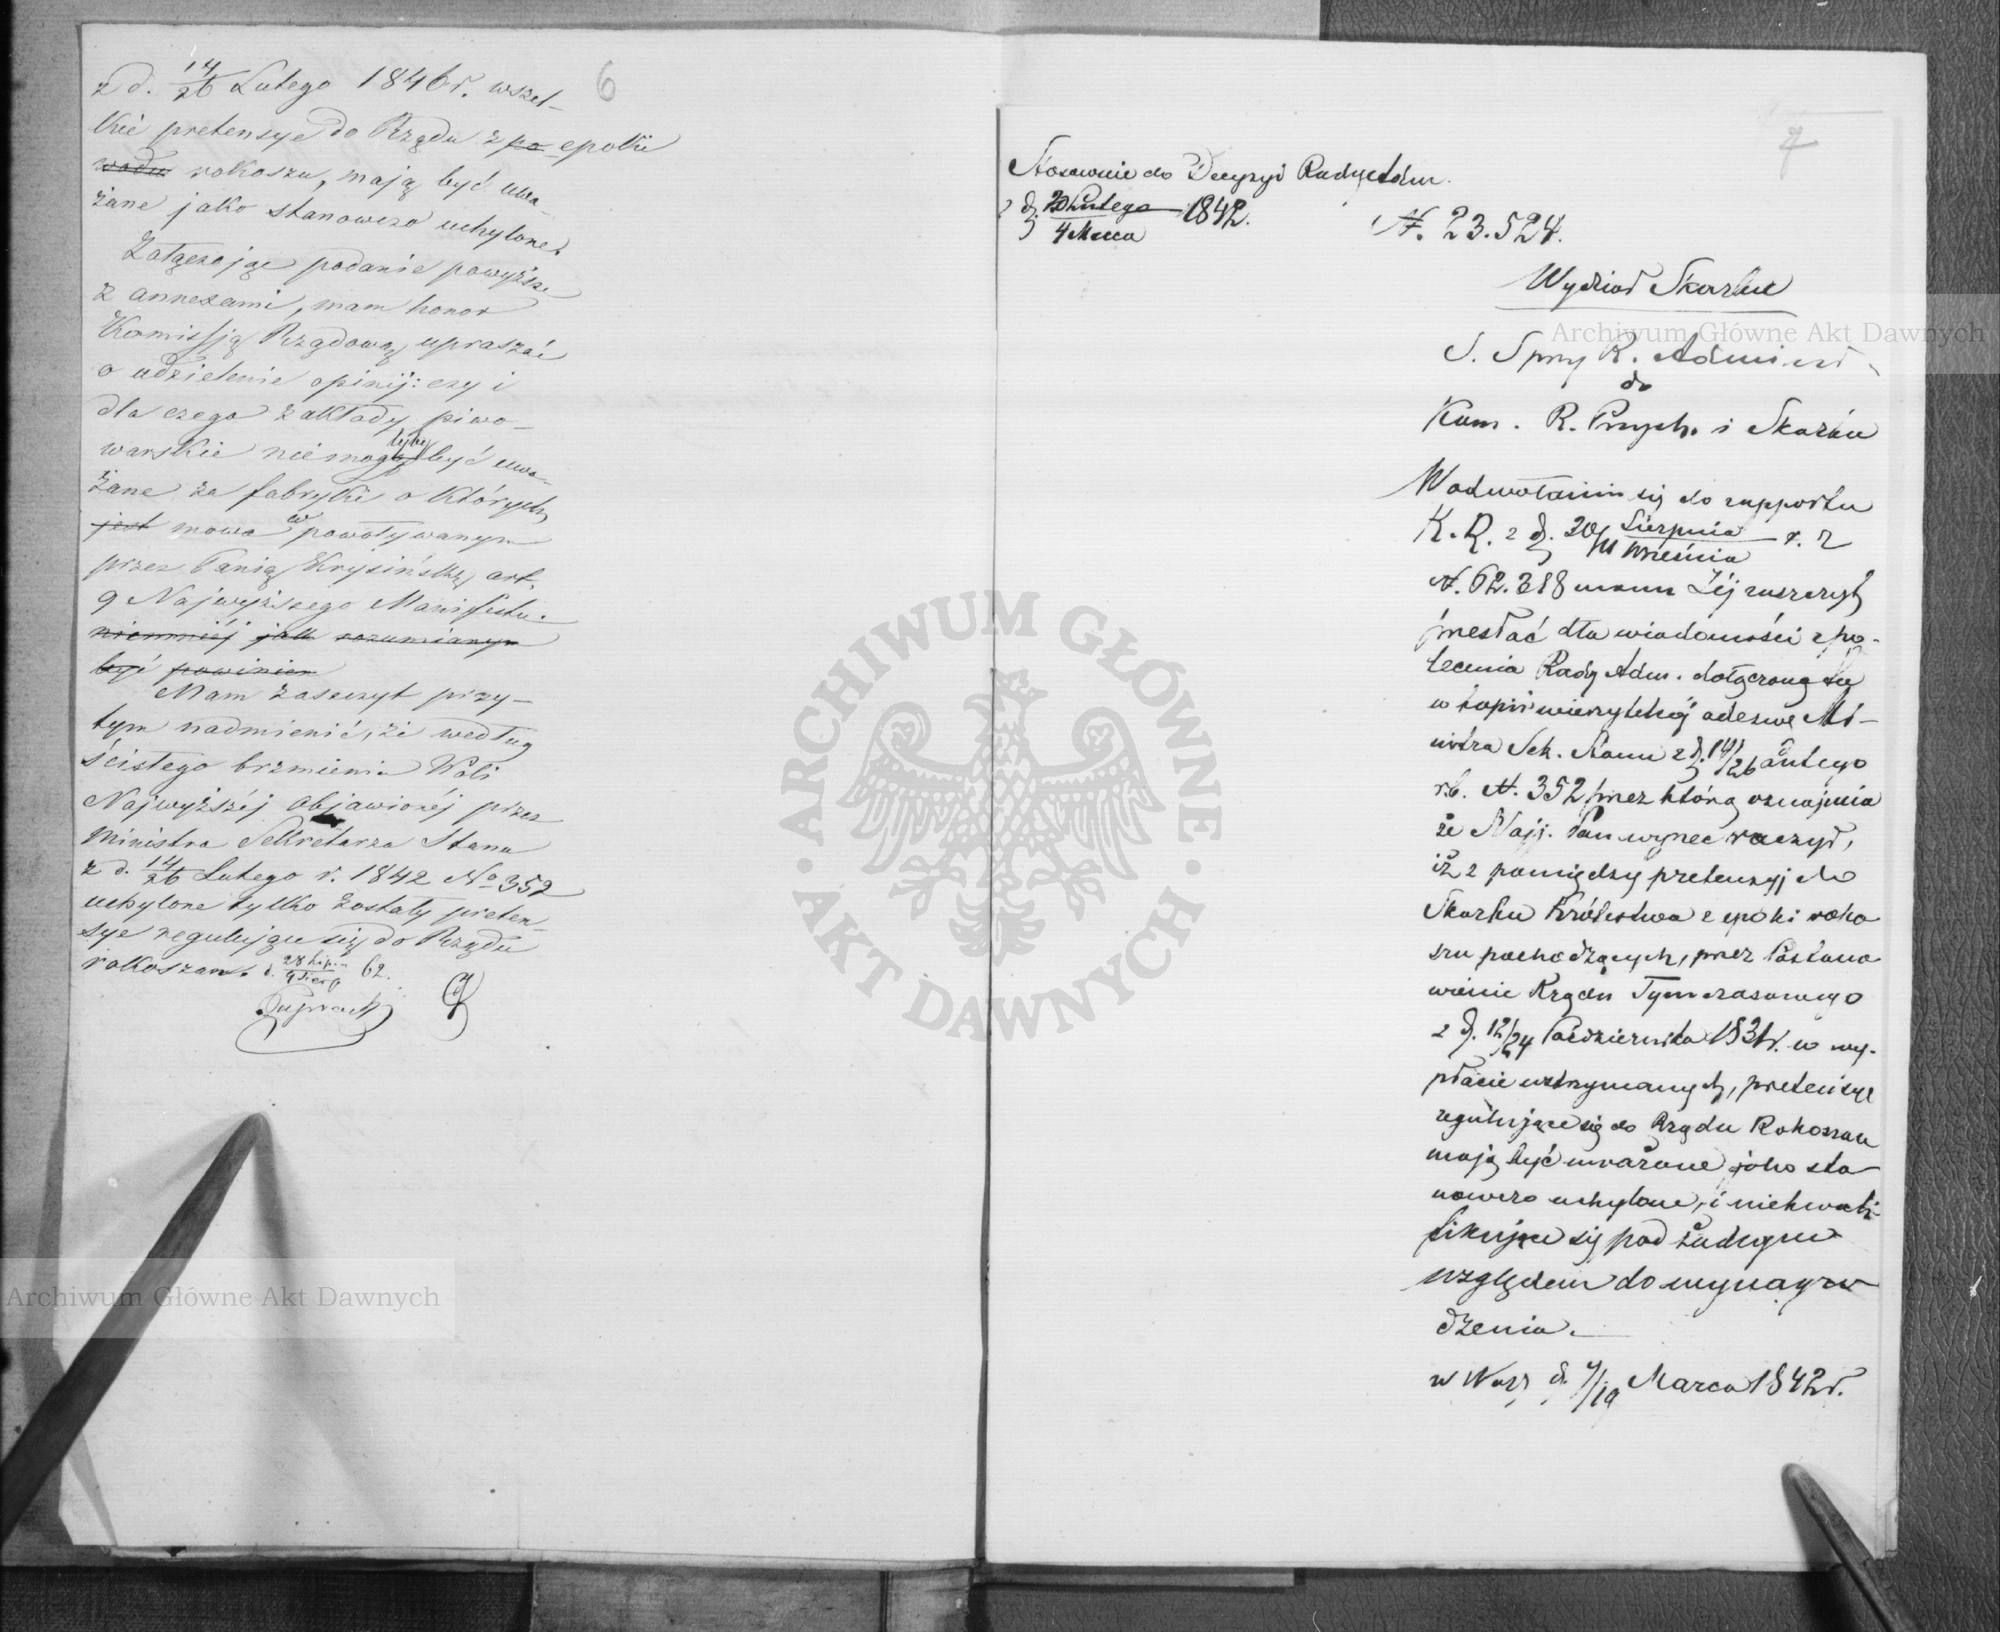 6
z d. 14/26 Lutego 1846 r. wszel-
kie pretensye do Rządu z po epoki
wodu rokoszu, mają być uwa-
żane jako stanowczo uchylone.
Załączając podanie powyższe
z annexami, mam honor
Kommissją Rządową upraszać
o udzielenie opinij: czy i
dla czego zakłady piwo-
warskie niemogą być uwa-
żane za fabryki o których
jest mowa w powoływanym
przez Panią Krysińską art.
9 Najwyższego Manifestu.
niemniéj jak rozumianym
być powinien
Mam zaszczyt przy-
tym nadmienić, że według
ścisłego brzmienia Woli
Najwyższéj objawionéj przez
Ministra Sekretarza Stanu
z d. 14/26 Lutego r. 1842 No 352
uchylone tylko zostały preten-
sye regulujące się do Rządu
rokoszan. d. 28 Lipca/9 Sierp 62.
7
Stosownie do Decyzyi Rady Adm.
z d. 20 Lutego/4 Marca 1842.
N. 23.524.
Wydział Skarbu
S. Spraw R. Administ
do
Kom. R. Przych. i Skarbu
W odwołaniu się do rapportu
K. R. z d. 20 Sierpnia/1 Września r. z
N. 62.388 mam Jéj zaszczyt
przesłać dla wiadomości z po-
lecenia Rady Adm. dołączoną tu
w kopii wierzytelnéj odezwę Mi-
nistra Sek. Stanu z d. 14/26 Lutego
r.b. N. 352 przez którą oznajmia
że Najj. Pan wyrzec raczył,
iż z pomiędzy pretensyj do
Skarbu Królestwa z epoki roko-
szu pochodzących, przez Postano-
wienie Rządu Tymczasowego
z d. 12/24 Października 1831 r. w wy-
płacie wstrzymanych, pretensye
regulujące się do Rządu Rokoszan
mają być uważane jako sta-
nowczo uchylone, i niekwali-
fikujące się pod żadnym
względem do wynagro-
dzenia.
w Warsz. d. 7/19 Marca 1842 r.
Archiwum Główne Akt Dawnych
Archiwum Główne Akt Dawnych
ARCHIWUM GŁÓWNE AKT DAWNYCH